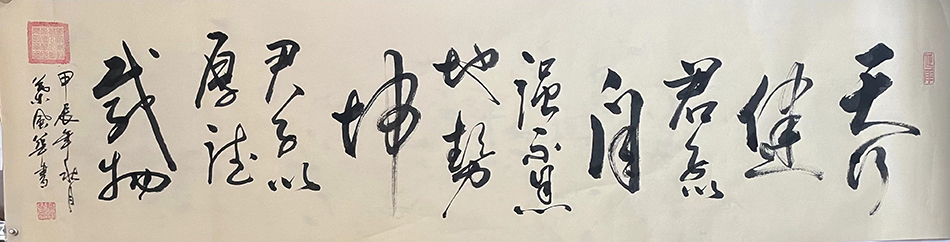 天行
健
君子以
自
强不息
地勢
坤
君子以
厚德
載物
甲辰年秋月
書